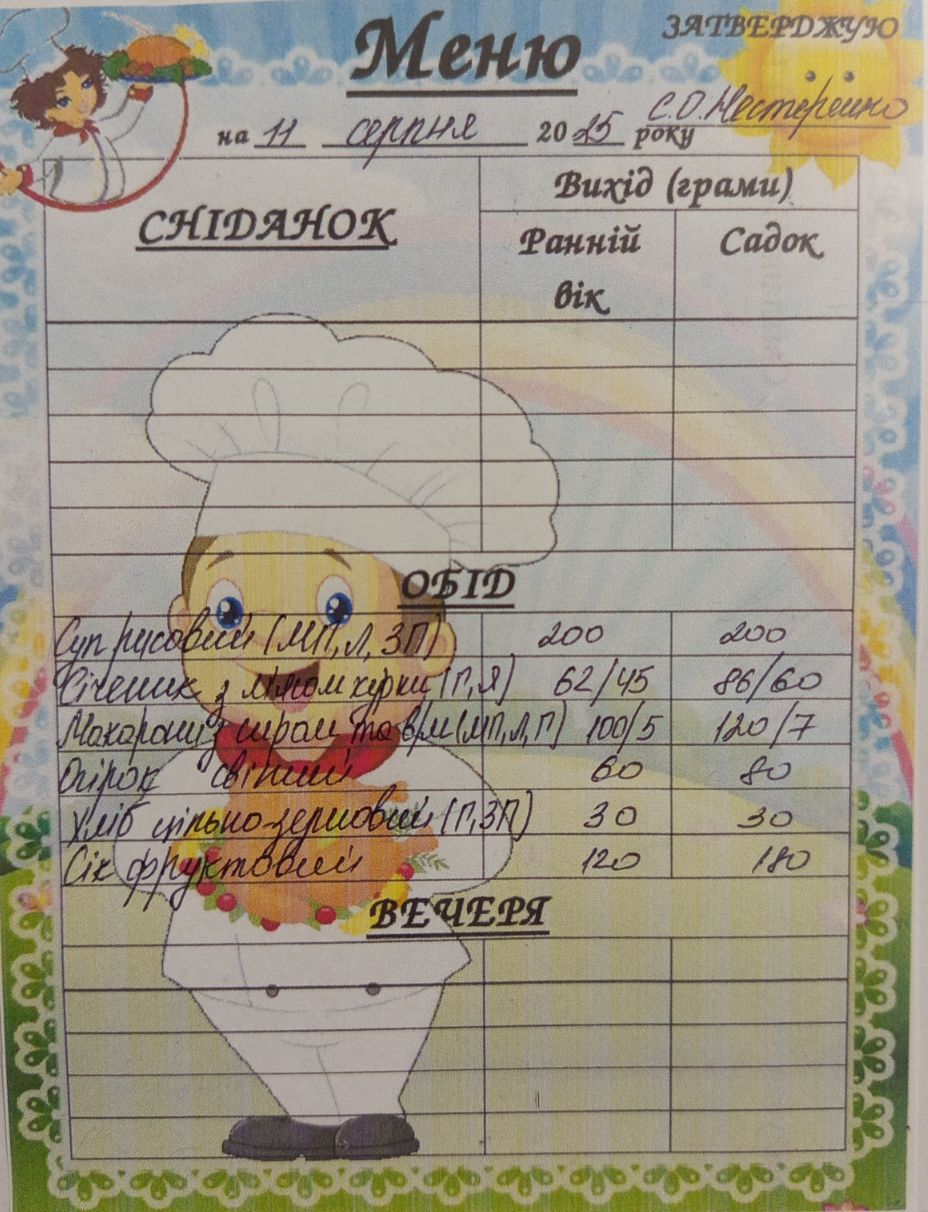 ЗАТВЕРДЖУЮ
Меню
С.О. Нестеренко
на 11 серпня 2025 року
СНІДАНОК
Вихід (грами)
Ранній вік
Садок
ОБІД
Суп рисовий (МП, Л, ЗП) 200 200
Січеник з м'ясом курки (П, Я) 62/45 86/60
Макарони з сиром та в/м (МП, Л, П) 100/5 120/7
Огірок свіжий 60 80
Хліб цільно-зерновий (П, ЗП) 30 30
Сік фруктовий 120 180
ВЕЧЕРЯ